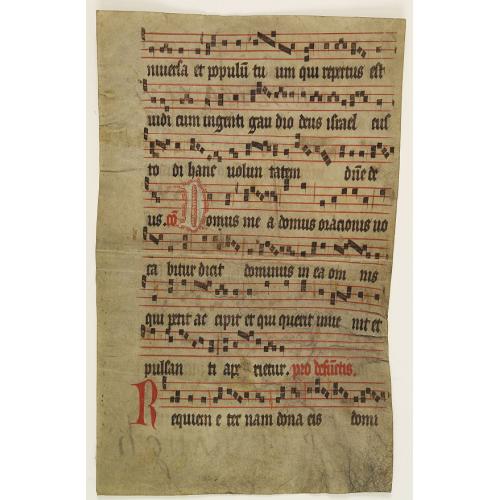 niuersa et populū tu um qui repertus est
uidi cum ingenti gau dio deus israel cus
to di hanc uolun tatem dñe de
us. cō Domus me a domus oracionis uo
ca bitur dicit dominus in ea om nis
qui petit ac cipit et qui querit inue nit et
pulsan ti ape rietur. pro defunctis.
Requiem e ter nam dona eis domi